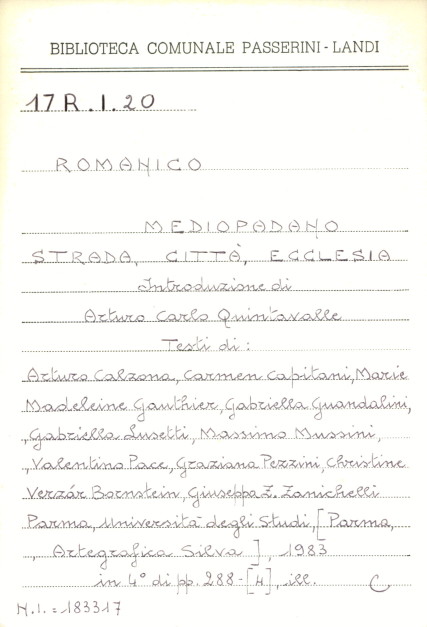 BIBLIOTECA COMUNALE PASSERINI - LANDI
17 R. I. 20
ROMANICO
MEDIOPADANO
STRADA, CITTÀ, ECCLESIA
Introduzione di
Arturo Carlo Quintavalle
Testi di:
Arturo Calzona, Carmen Capitani, Marie
Madeleine Gauthier, Gabriella Guandalini,
, Gabriella Lusetti, Massimo Mussini,
, Valentino Pace, Graziana Pezzini, Christine
Verzár Bornstein, Giuseppa Z. Zanichelli
Parma, Università degli Studi, [Parma,
, Artegrafica Silva], 1983
in 4° di pp. 288-[4], ill. C
N.I. = 183317